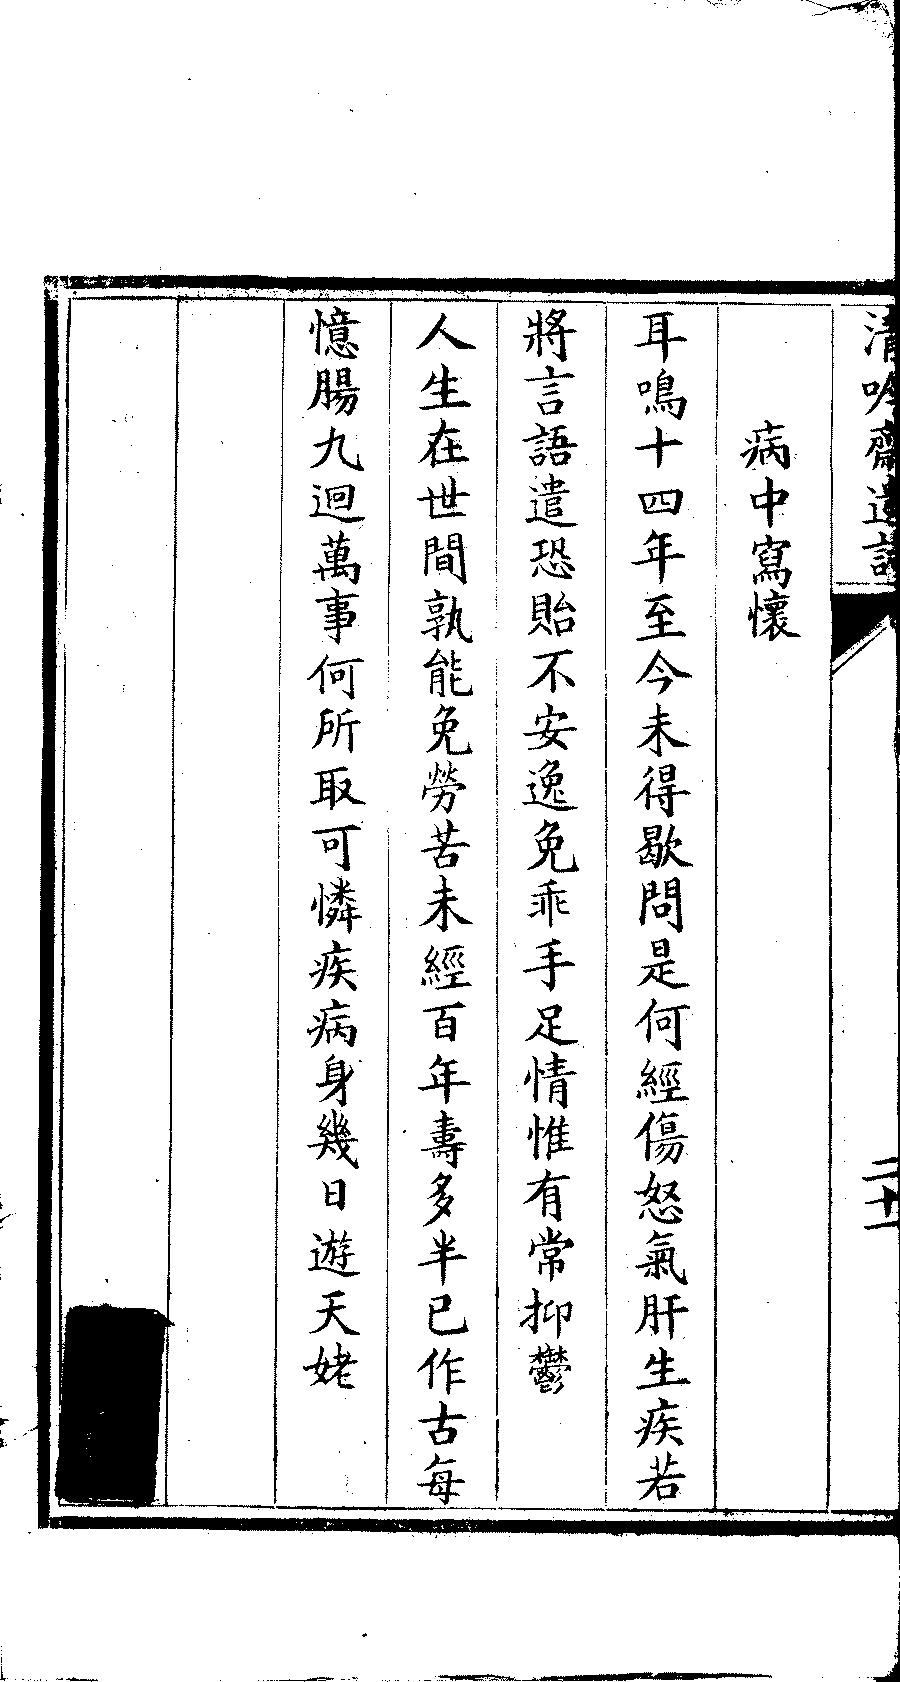 清吟齋遺詩
二十一
病中寫懷
耳鳴十四年至今未得歇問是何經傷怒氣肝生疾若
將言語遣恐貽不安逸免乖手足情惟有常抑鬱
人生在世間孰能免勞苦未經百年壽多半已作古每
憶腸九迴萬事何所取可憐疾病身幾日遊天姥